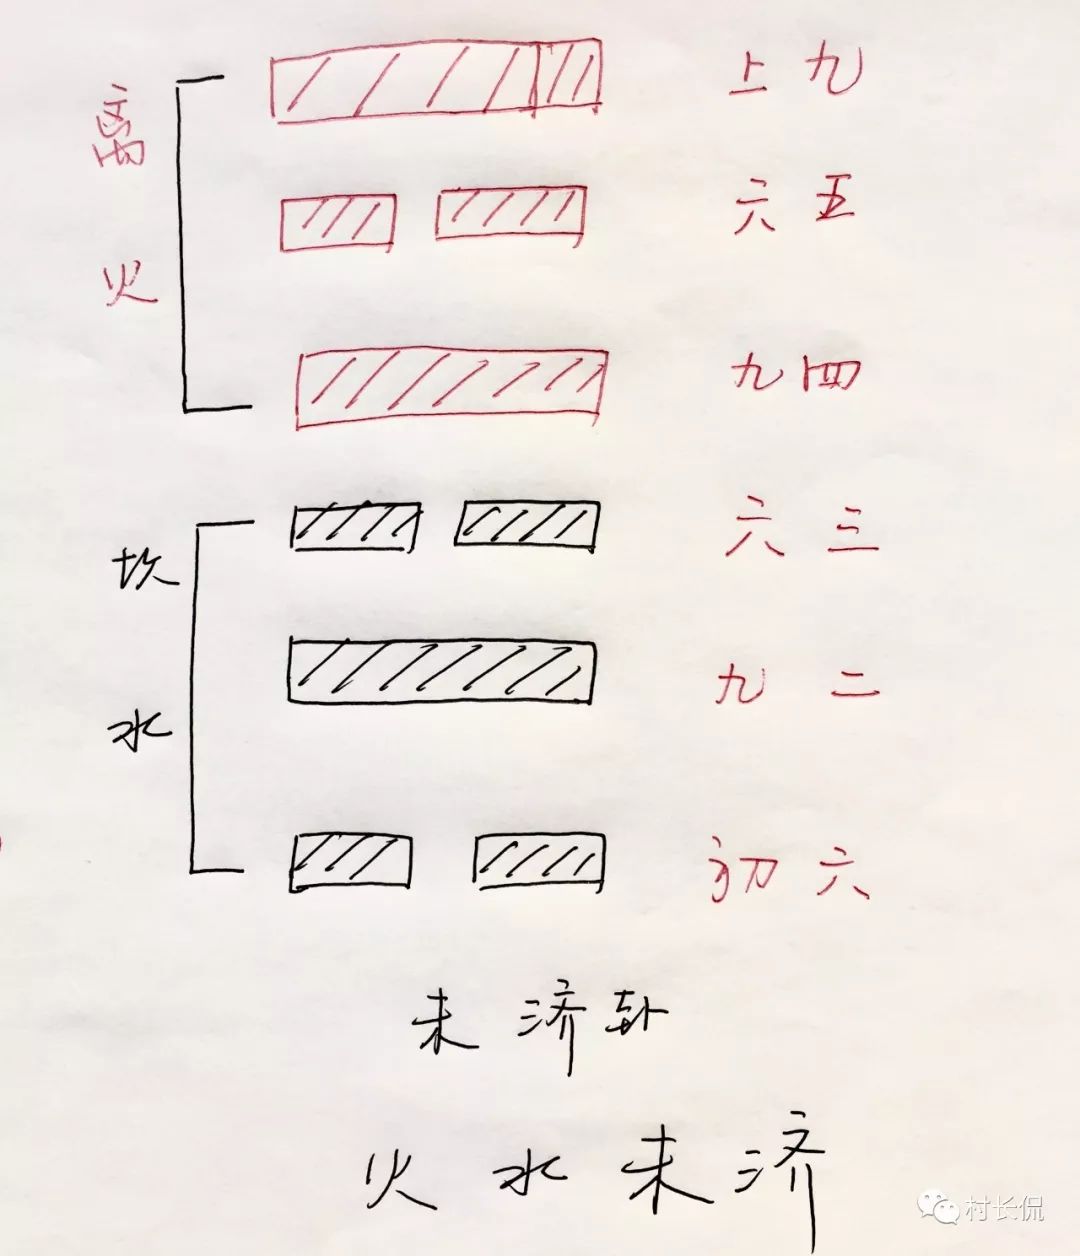 上九
离
六五
火
九四
六三
坎
九二
水
初六
未济卦
火水未济
村长侃